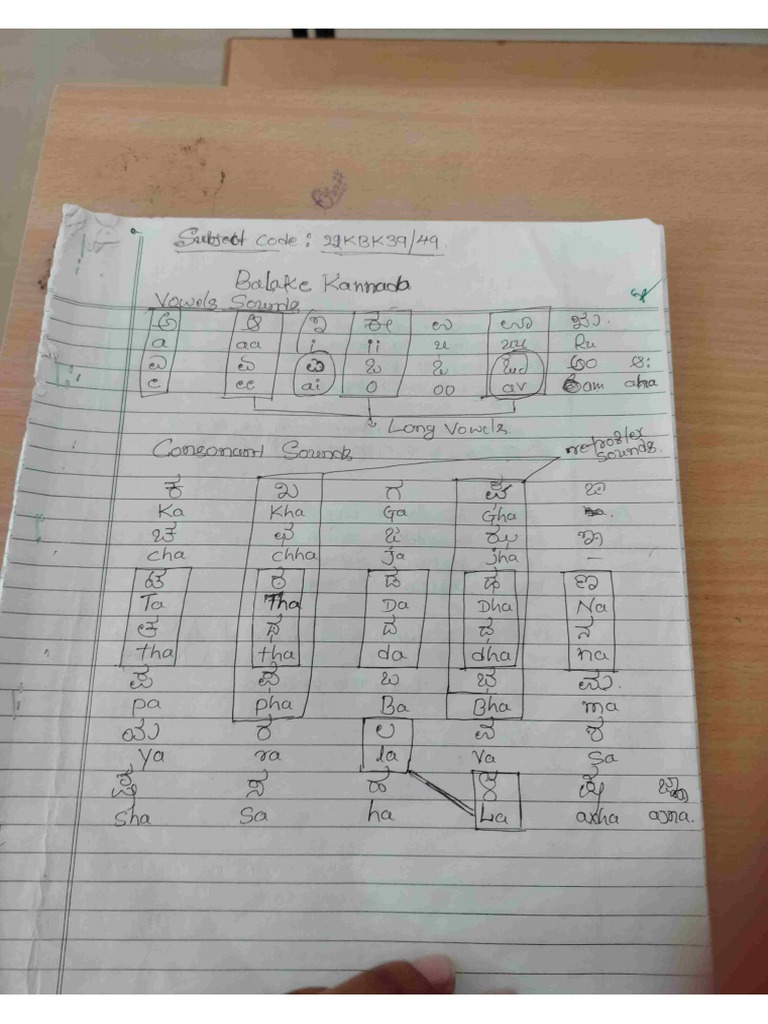 Subject code: 21KBK39/49.
Balake Kannada
Vowels Sounds
ಅ ಆ ಇ ಈ ಉ ಊ ಋ.
a aa i ii u uu Ru
ಎ ಏ ಐ ಒ ಓ ಔ ಅಂ ಅಃ
e ee ai o oo av am aha
Long Vowels
Consonant Sounds
retroflex sounds.
ಕ ಖ ಗ ಘ
Ka Kha Ga Gha
ಚ ಛ ಜ ಝ ಞ
cha chha ja jha –
ಟ ಠ ಡ ಢ ಣ
Ta Tha Da Dha Na
ತ ಥ ದ ಧ ನ
tha tha da dha na
ಪ ಫ ಬ ಭ ಮ.
pa pha Ba Bha ma
ಯ ರ ಲ ವ ಶ
Ya ra la Va Sa
ಷ ಸ ಹ ಳ ಕ್ಷ ಜ್ಞ
Sha Sa ha La axha